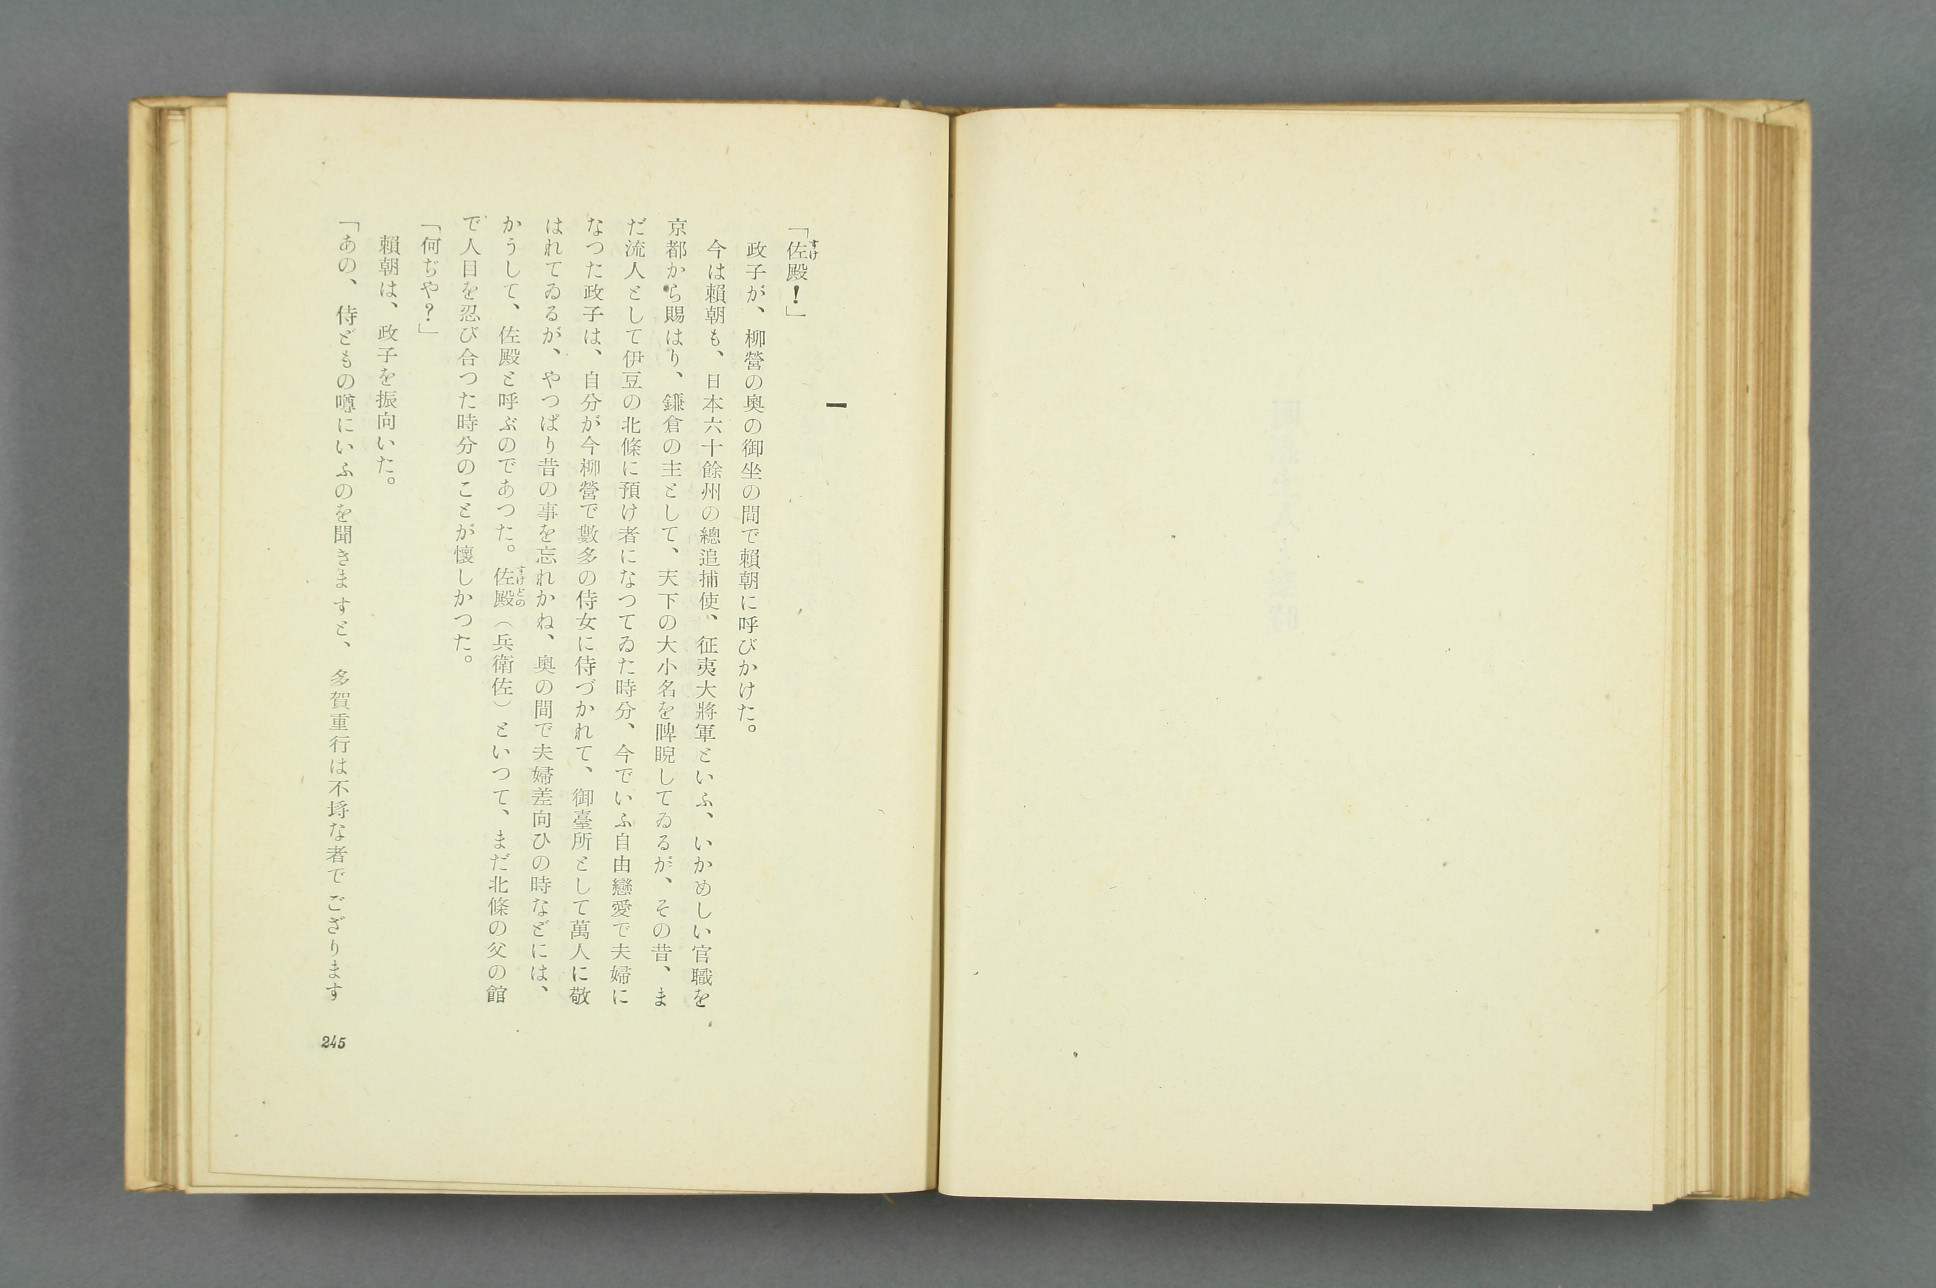 一
「佐殿！」
政子が、柳營の奥の御坐の間で賴朝に呼びかけた。
今は賴朝も、日本六十餘州の總追捕使、征夷大將軍といふ、いかめしい官職を
京都から賜はり、鎌倉の主として、天下の大小名を睥睨してゐるが、その昔、ま
だ流人として伊豆の北條に預け者になつてゐた時分、今でいふ自由戀愛で夫婦に
なつた政子は、自分が今柳營で數多の侍女に侍づかれて、御臺所として萬人に敬
はれてゐるが、やつぱり昔の事を忘れかね、奥の間で夫婦差向ひの時などには、
かうして、佐殿と呼ぶのであつた。佐殿（兵衛佐）といつて、まだ北條の父の館
で人目を忍び合つた時分のことが懷しかつた。
「何ぢや？」
賴朝は、政子を振向いた。
「あの、侍どもの噂にいふのを聞きますと、多賀重行は不埒な者でござります
245